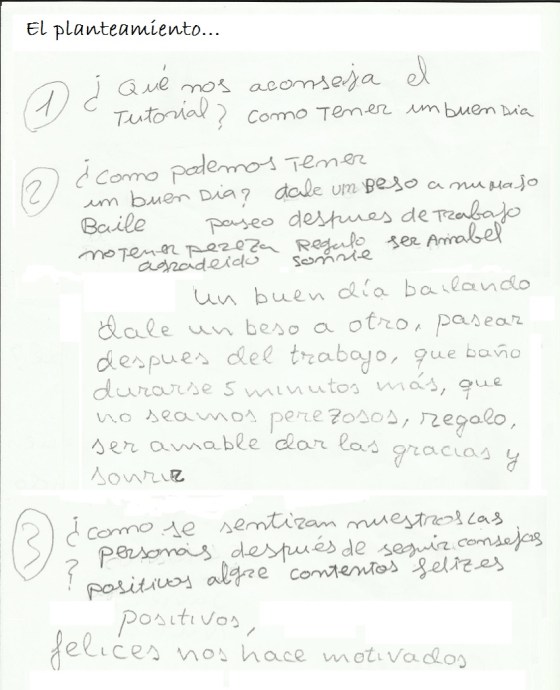 El planteamiento...
1 ¿Qué nos aconseja el
Tutorial? como Tener un buen Dia
2 ¿como podemos Tener
un buen Dia? dale un Beso a nu majo
Baile paseo despues de Trabajo
no Tener pereza Regalo ser Amabel
agradeido sonrie
un buen día bailando
dale un beso a otro, pasear
despues del trabajo, que baño
durarse 5 minutos más, que
no seamos perezosos, regalo,
ser amable dar las gracias y
sonriz
3 ¿como se sentiran nuestros las
personas después de seguir consejos
? positivos algre contentos felizes
positivos,
felices nos hace motivados